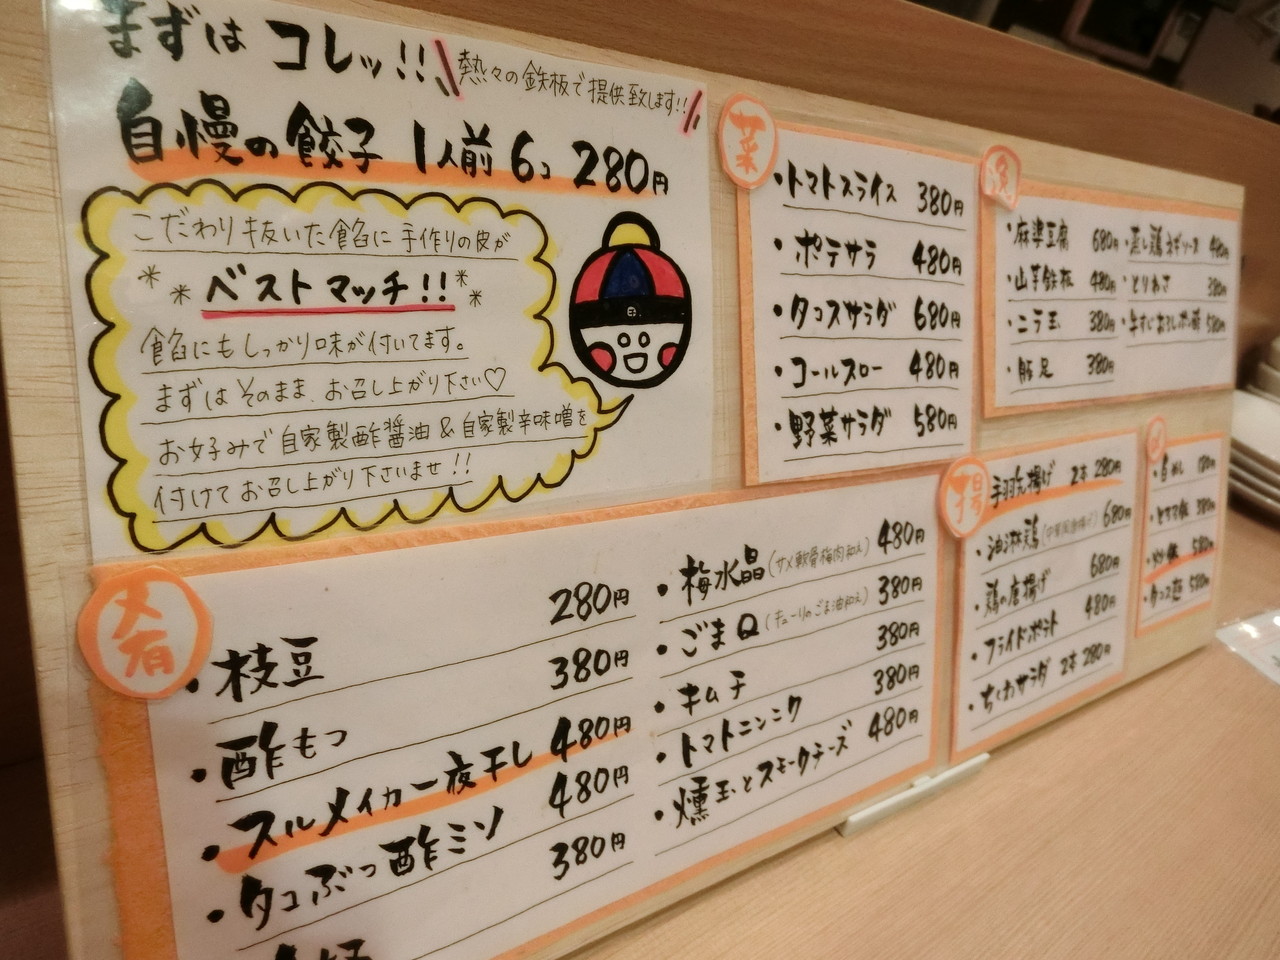 まずは コレッ!!
熱々の鉄板で提供致します!!
自慢の餃子 1人前 6コ 280円
こだわり抜いた餡に 手作りの皮が
ベストマッチ!!
餡にもしっかり味が付いてます。
まずはそのまま、お召し上がり下さい♡
お好みで自家製酢醤油&自家製辛味噌を
付けてお召し上がり下さいませ!!
菜
・トマトスライス 380円
・ポテサラ 480円
・タコスサラダ 680円
・コールスロー 480円
・野菜サラダ 580円
・麻婆豆腐 680円
・山芋鉄板 480円
・ニラ玉 380円
・豚足 380円
・蒸し鶏ネギソース 480円
・とりわさ 380円
・牛すじおろしポン酢 580円
肴
・枝豆 280円
・酢もつ 380円
・スルメイカ一夜干し 480円
・タコぶつ酢ミソ 480円
380円
・梅水晶(サメ軟骨梅肉和え) 480円
・ごまQ(キューリのごま油和え) 380円
・キムチ 380円
・トマトニンニク 380円
・燻玉とスモークチーズ 480円
揚
手羽先揚げ 2本 280円
・油淋鶏 680円
・鶏の唐揚げ 680円
・フライドポテト 480円
・ちくわサラダ 2本 280円
〆
・白めし
380円
580円
・タコス 580円